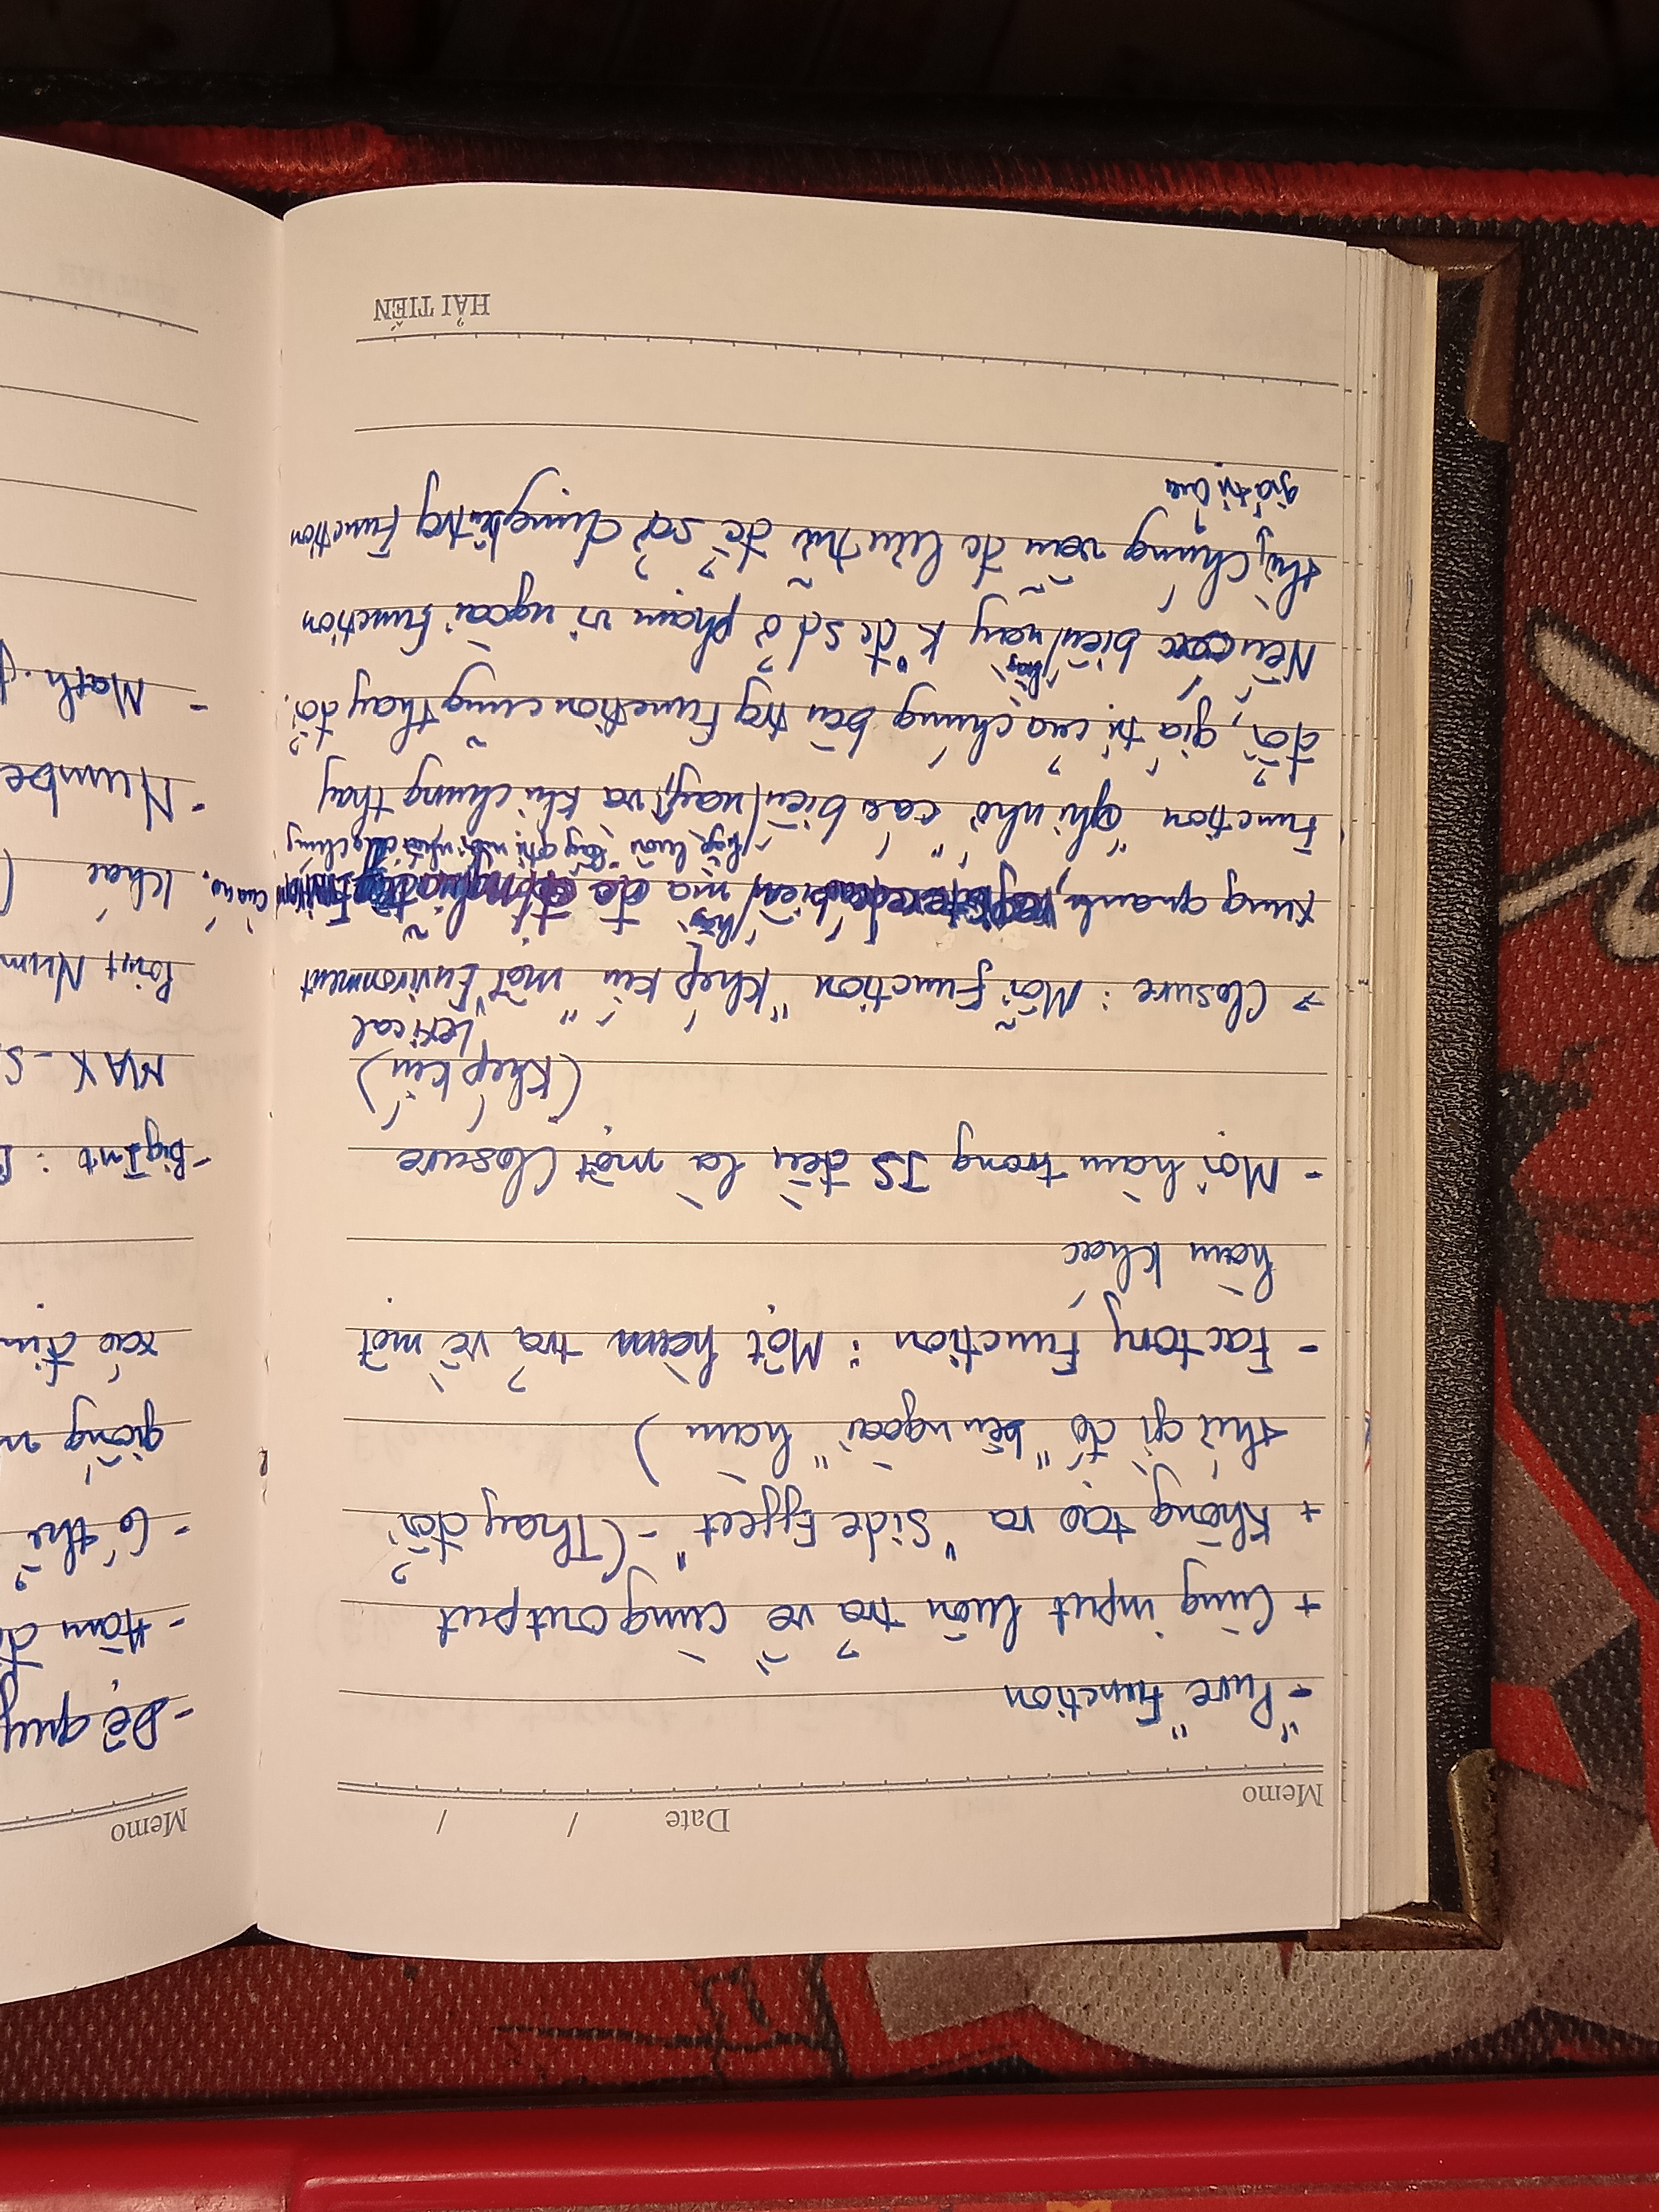 Memo Date / /
- "Pure" Function
+ Cùng input luôn trả về cùng output
+ Không tạo ra "Side Effect" - (Thay đổi
thứ gì đó "bên ngoài" hàm)
- Factory Function : Một hàm trả về một
hàm khác
- Mọi hàm trong JS đều là một Closure
(Khép kín)
Lexical
→ Closure : Mỗi Function "khép kín" một "Environment
xung quanh, biến/hằng mà đc của nó.
/hằng luôn "lấy gtrị mới nhất của chúng
Function "ghi nhớ" các biến/này, và khi chúng thay
đổi, giá trị của chúng bên trg Function cũng thay đổi.
/hằng
Nếu các biến/này K° đc sd ở phạm vi ngoài Function
thì, chúng vẫn đc lưu trữ để sử dụng bên trg Function
giá trị của
HẢI TIẾN
Memo
- Đệ quy
- Hàm
- Có thể
giống
xác
- BigInt :
MAX_S
Point Num
khác (
- Numbe
- Math.f